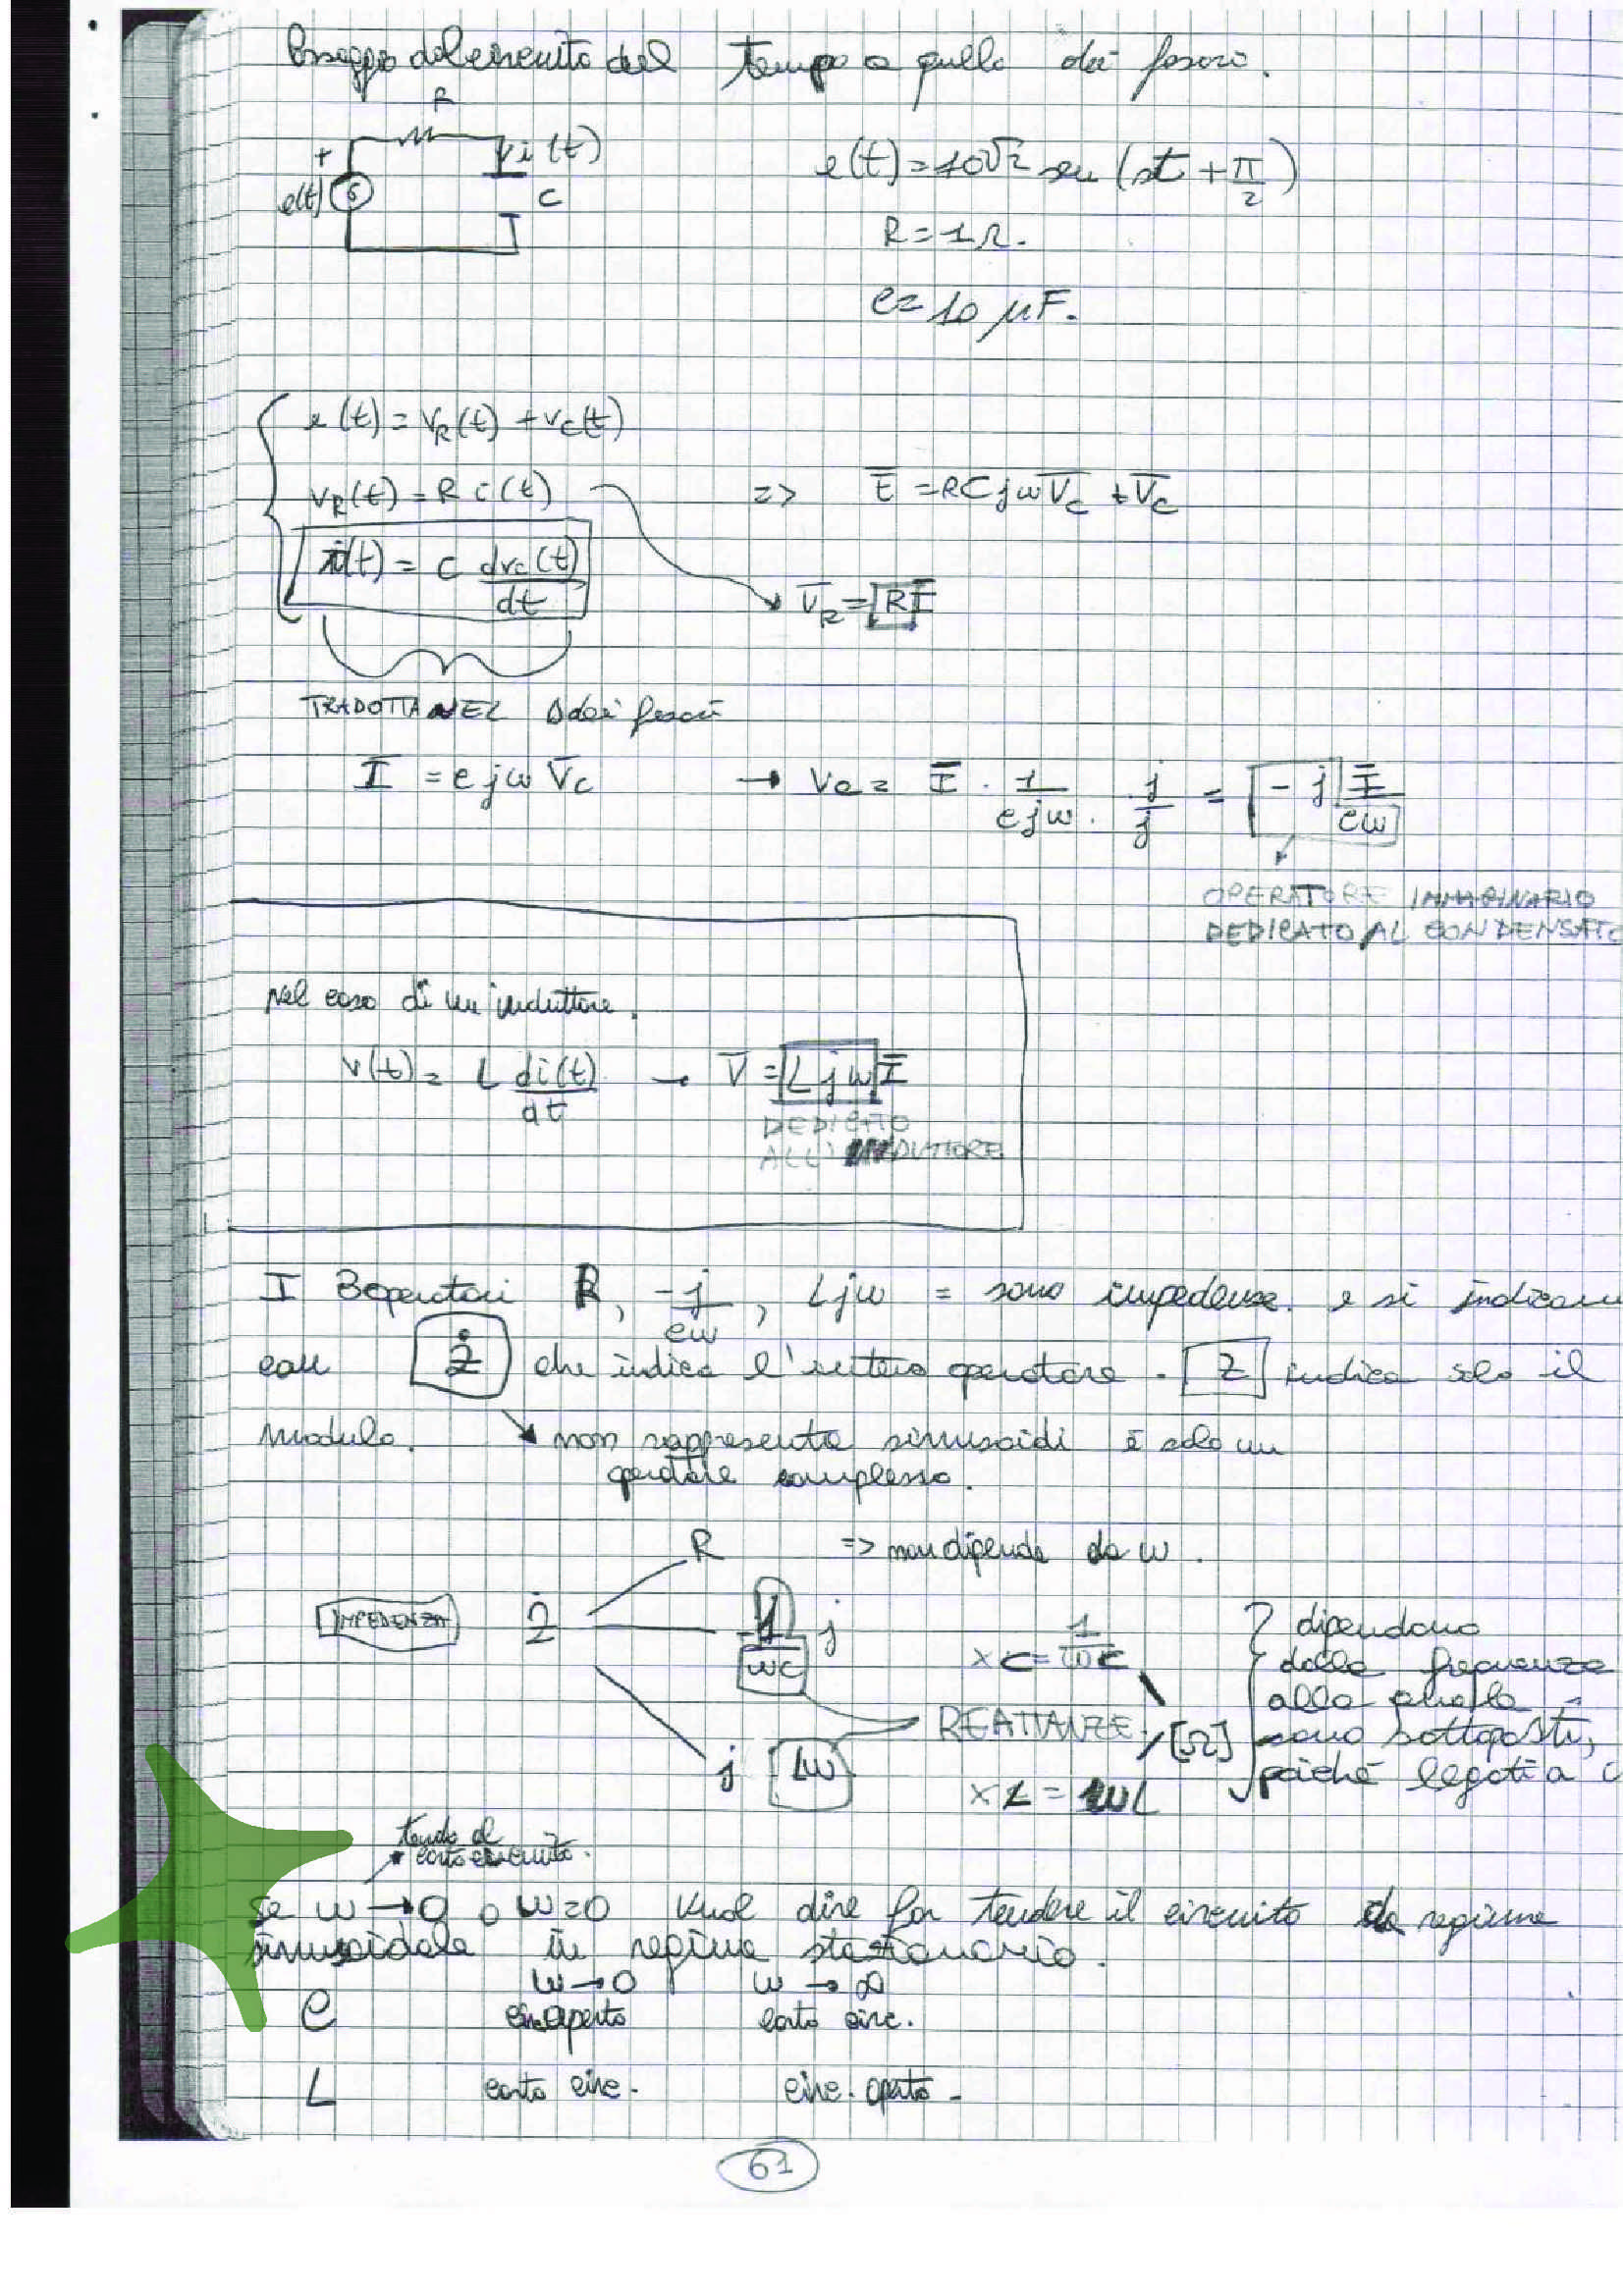 Passaggio dal circuito del tempo a quello dei fasori.
R
+ i(t)
e(t) C
e(t)=10√2 sen (st + π/2)
R=1Ω.
C= 10 μF.
e(t) = vR(t) + vc(t)
vR(t) = R i(t) => E̅ = RCjωV̅c + V̅c
i(t) = C dvc(t)/dt
V̅R = R I̅
TRADOTTA NEL D dei fasori
I̅ = cjω V̅c → Vc = I̅ · 1/cjω · j/j = -j I̅/cω
OPERATORE IMMAGINARIO
DEDICATO AL CONDENSATO
Nel caso di un induttore.
v(t) = L di(t)/dt → V̅ = Ljω I̅
DEDICATO
ALL'INDUTTORE
I 3 operatori R, -j/cω, Ljω = sono impedenze. e si indicano
con Ż che indica l'intero operatore. Z indica solo il
modulo. ↘ non rappresenta sinusoidi è solo un
operatore complesso.
R => non dipende da ω.
IMPEDENZA Ż -1/ωc j
xc = 1/ωc
REATTANZE [Ω]
j Lω
xL = ωL
dipendono
dalla frequenza
alla quale
sono sottoposti,
poiché legati a
tendo al
corto circuito.
Se ω → 0 o ω=0 vuol dire far tendere il circuito da regime
sinusoidale in regime stazionario.
ω→0 ω→∞
C circ. aperto corto circ.
L corto circ. circ. aperto
61